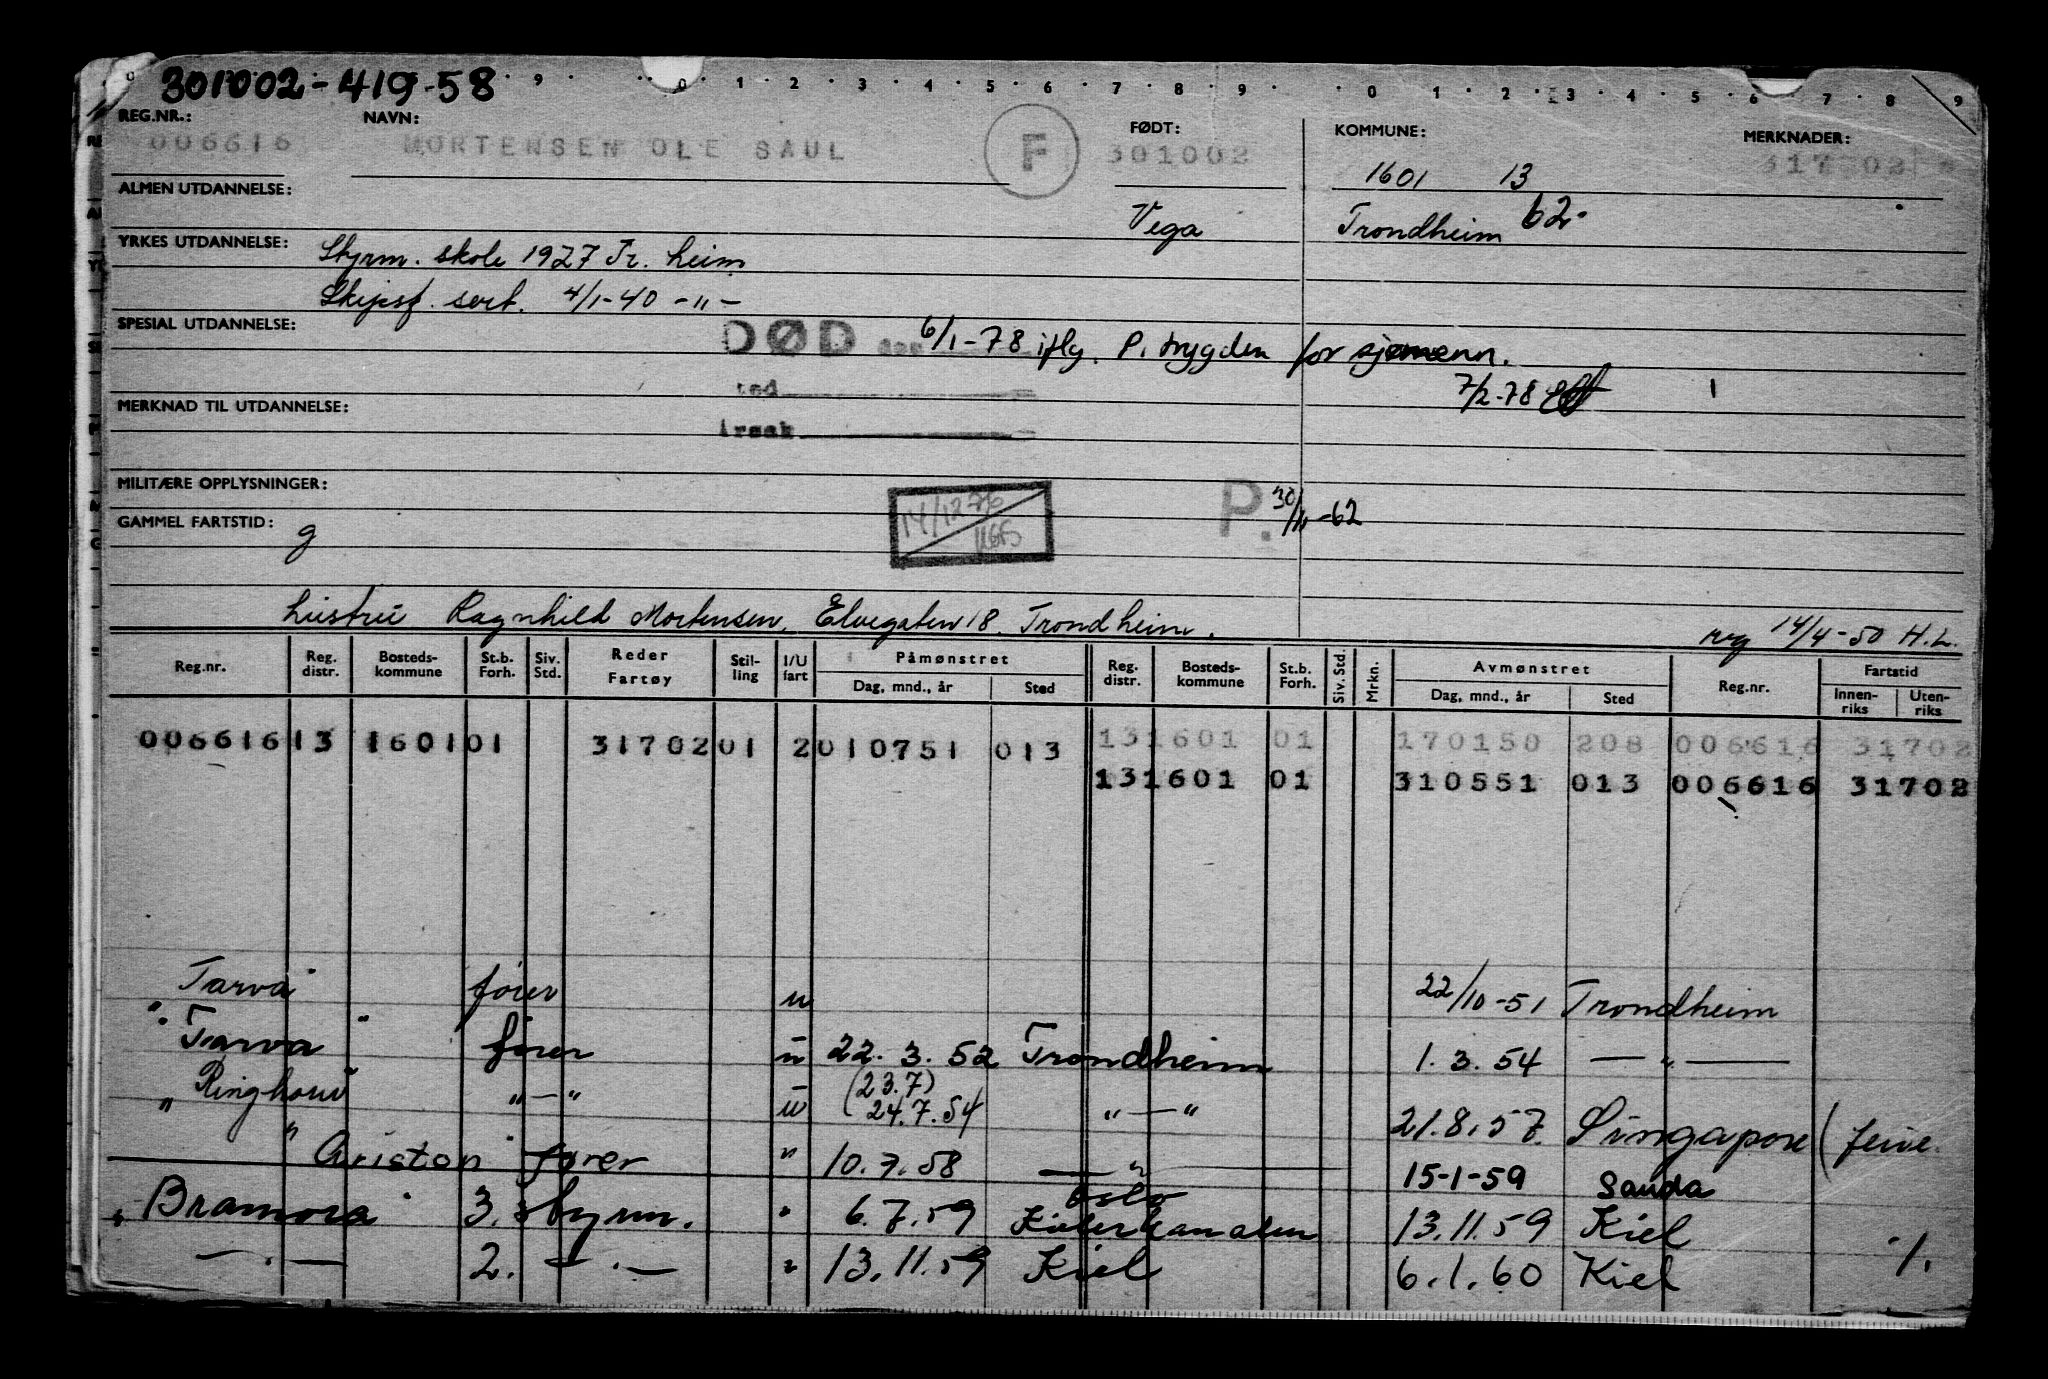 301002-419-58
9 0 1 2 3 4 5 6 7 8 9 0 1 2 3 4 5 6 7 8 9
REG.NR.: NAVN: FØDT: KOMMUNE: MERKNADER:
006616 MORTENSEN OLE SAUL F 301002 1601 13
ALMEN UTDANNELSE: Vega Trondheim 62.
YRKES UTDANNELSE: Styrm. skole 1927 Tr. heim
Skipsf. sert. 4/1-40 -"-
SPESIAL UTDANNELSE: DØD den 6/1-78 iflg. P. trygden for sjømenn.
sted 7/2-78
MERKNAD TIL UTDANNELSE:
Årsak
MILITÆRE OPPLYSNINGER: P. 30/11-62
GAMMEL FARTSTID: g
hustru Ragnhild Mortensen, Elvegaten 18. Trondheim.
reg 14/4-50 H.L.
Reg.nr. Reg. distr. Bosteds-kommune St.b. Forh. Siv. Std. Reder Fartøy Stil-ling I/U fart Påmønstret Dag, mnd., år Sted Reg. distr. Bosteds-kommune St.b. Forh. Siv. Std. Mrkn. Avmønstret Dag, mnd., år Sted Reg.nr. Fartstid Innen-riks Uten-riks
131601 01 170150 208 006616 31702
006616 13 1601 01 31702 01 2 010751 013
131601 01 310551 013 006616 31702
"Tarva" fører u 22/10-51 Trondheim
"Tarva" fører u 22.3.52 Trondheim 1.3.54 —"—
"Ringhorn" "—" u (23.7) 24.7.54 "—" 21.8.57. Singapore (ferie.
"Ariston" fører " 10.7.58 —"— 15-1-59 Sauda
"Bramora" 3. styrm. " 6.7.59 Oslo Kielerkanalen 13.11.59 Kiel
—.— 2. —.— " 13.11.59 Kiel 6.1.60 Kiel ./.